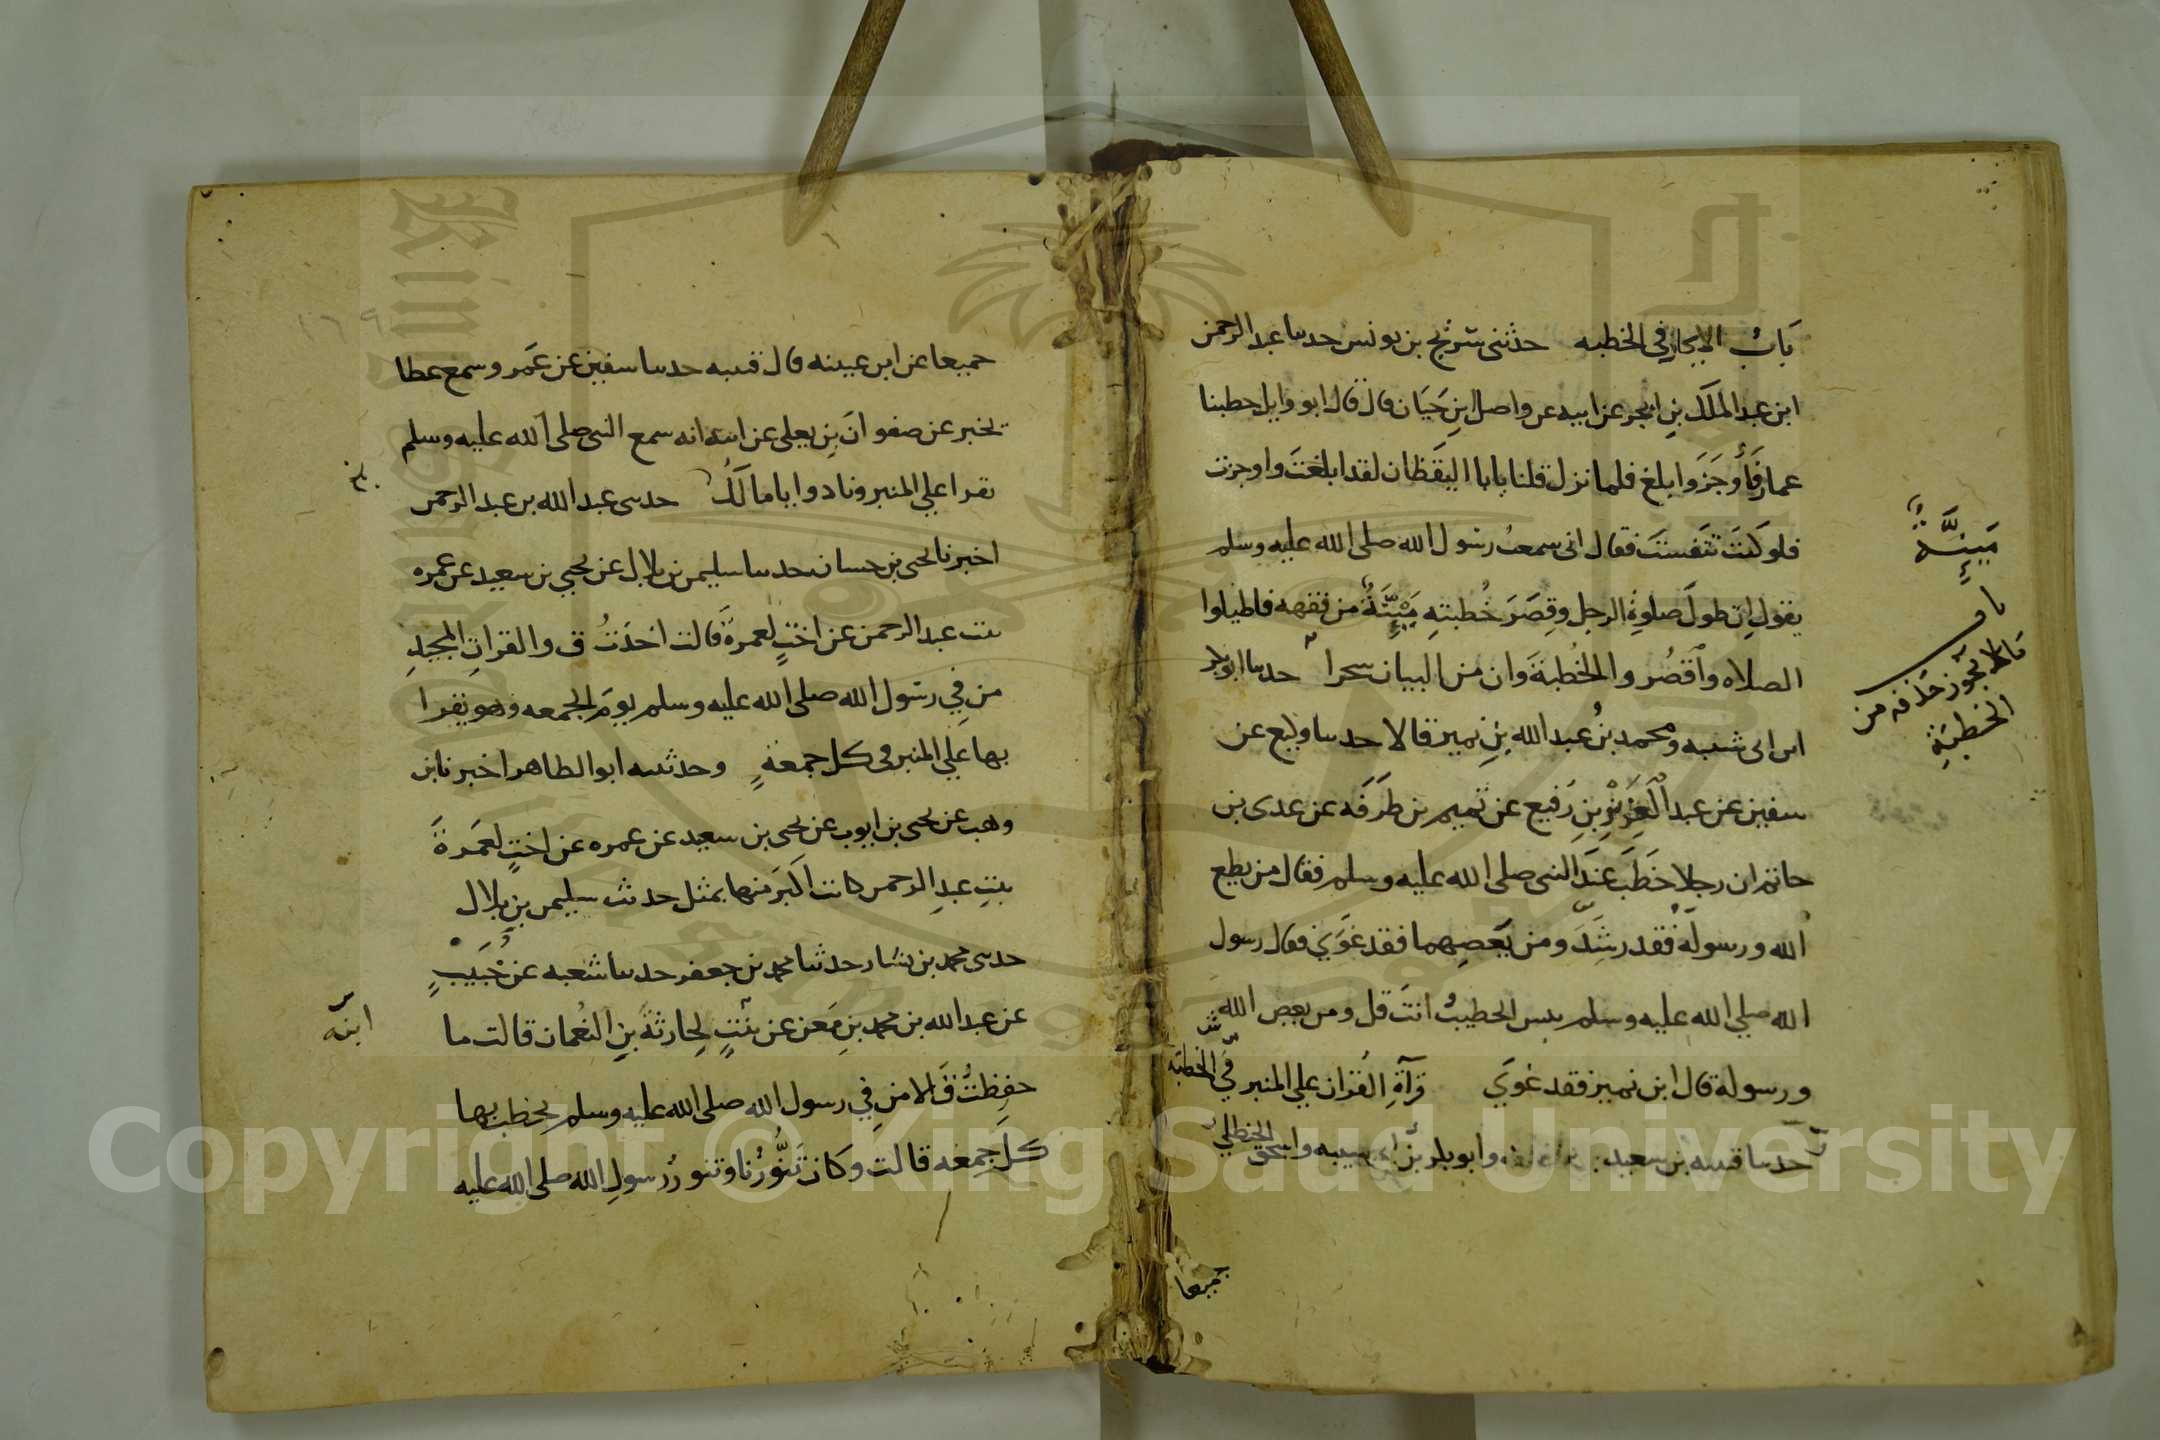 باب الايجاز في الخطبه حدثني سريج بن يونس حدثنا عبد الرحمن
ابن عبد الملك بن ابجر عن ابيه عن واصل بن حَيَان قال قال ابو وايل خطبنا
عمار فَأوجَزَ وابلغ فلما نزل قلنا يا با اليَقَظان لقد ابلغتَ واوجزت
فلو كنتَ تنفستَ فقال انى سمعتُ رسول الله صلى الله عليه وسلم
يقول اِن طولَ صلوةِ الرجل وقِصَرَ خُطبتهِ مَيِنَّةٌ من فقهه فاطيلوا
الصلاه وٱقصُروا الخُطبةَ وان من البيان سحرا حدثنا ابو بكر
ابن ابى شيبه ومحمد بنُ عبد الله بنِ نمير قالا حدثنا وكيع عن
سفين عن عبد العَزِيزِ بنِ رَفيع عن تميم بن طَرَفَه عن عدى بن
حاتم ان رجلا خَطَبَ عِندَ النبى صلى الله عليه وسلم فقال من يطع
الله ورسولهَ فقد رشَدَ ومن يَعصِهما فقد غوَي فقال رسول
الله صلي الله عليه وسلم بيس الخطيبُ انتَ قل ومن يعص الله
ورسوله قال ابن نمير فقد غوَي قرآةِ القُران علي المنبر في الخطبه
حدثنا قتيبه بن سعيد وابو بكر بن ابى شيبه واسحق الحنظلي
مَيِنَّةٌ
باب
ما لا يجوز حذفه من
الخطبَةِ
جميعا
١٦٩
جميعا عن ابن عيينه قال قتيبه حدثنا سفين عن عَمرو سمع عطا
يخبر عن صفوانَ بنِ يعلى عن ابيه انه سمع النبى صلى الله عليه وسلم
يقرا علي المنبر ونادوا يا مالكُ حدثنى عبد الله بن عبد الرحمن
اخبرنا يحيى بن حسان حدثنا سليمن بن بلال عن يحيي بن سعيد عن عمره
بنت عبد الرحمن عن اختٍ لعمرةَ قالت اخذتُ ق والقرانِ المجيدِ
من فِي رسول الله صلى الله عليه وسلم يومَ الجمعه وهو يقرا
بها علي المنبر فى كل جمعةٍ وحدثنيه ابو الطاهر اخبرنا ابن
وهب عن يحيى بن ايوب عن يحيى بن سعيد عن عمره عن اختٍ لعَمرةَ
بنتِ عبدِ الرحمن كانت اكبَرَ منها بمثل حديث سليمن بنِ بلال
حدثنى محمد بن بشار حدثنا محمد بن جعفر حدثنا شعبه عن خُبَيْبٍ
عن عبد الله بن محمد بنِ مَعن عن بنتٍ لحِارثةَ بنِ النُعمان قالت ما
ابنه
حفِظتُ قَ الا من فِي رسول الله صلى الله عليه وسلم يخطب بها
كلَ جُمعه قالت وكان تَنُّورُنا وتنورُ رسولِ الله صلى الله عليه
Copyright © King Saud University